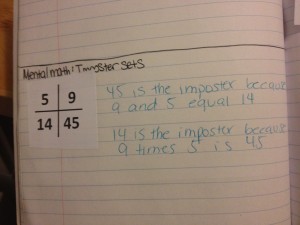 Mental math: Imposter sets
5 9
14 45
45 is the imposter because
9 and 5 equal 14
14 is the imposter because
9 times 5 is 45